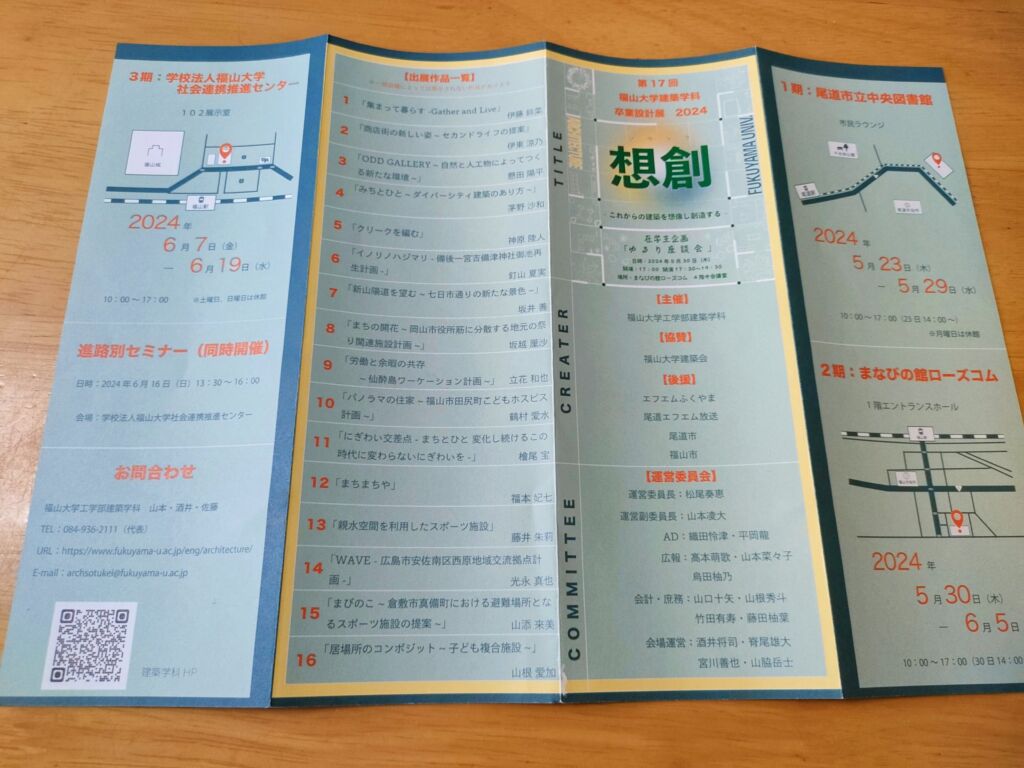 3期：学校法人福山大学
社会連携推進センター
１０２展示室
福山城
福山駅
2024 年
6 月 7 日（金）
― 6 月 19 日（水）
10：00～17：00 ※土曜日、日曜日は休館
進路別セミナー（同時開催）
日時：2024 年 6 月 16 日（日）13：30～16：00
会場：学校法人福山大学社会連携推進センター
お問合わせ
福山大学工学部建築学科　山本・酒井・佐藤
TEL：084-936-2111（代表）
URL：https://www.fukuyama-u.ac.jp/eng/architecture/
E-mail：archsotukei@fukuyama-u.ac.jp
建築学科 HP
【出展作品一覧】
1 「集まって暮らす -Gather and Live」
伊藤 鈴菜
2 「商店街の新しい姿～セカンドライフの提案」
伊東 涼乃
3 「ODD GALLERY～自然と人工物によってつく
る新たな環境～」 懸田 陽平
4 「みちとひと～ダイバーシティ建築のあり方～」
茅野 沙和
5 「クリークを編む」
神原 隆人
6 「イノリノハジマリ - 備後一宮吉備津神社御池再
生計画 -」 釘山 夏実
7 「新山陽道を望む～七日市通りの新たな景色～」
坂井 善
8 「まちの開花～岡山市役所筋に分散する地元の祭
り関連施設計画～」 坂越 厘沙
9 「労働と余暇の共存
～仙酔島ワーケーション計画～」 立花 和也
10 「パノラマの住家～福山市田尻町こどもホスピス
計画～」 鶴村 愛水
11 「にぎわい交差点 - まちとひと 変化し続けるこの
時代に変わらないにぎわいを -」 檜尾 宝
12 「まちまちや」
福本 妃七
13 「親水空間を利用したスポーツ施設」
藤井 朱莉
14 「WAVE - 広島市安佐南区西原地域交流拠点計
画 -」 光永 真也
15 「まびのこ～倉敷市真備町における避難場所とな
るスポーツ施設の提案～」 山添 来美
16 「居場所のコンポジット～子ども複合施設～」
山根 愛加
TITLE
CREATER
COMMITTEE
第 17 回
福山大学建築学科
卒業設計展　2024
FUKUYAMA UNIV.
想創
これからの建築を想像し創造する
在学生企画
「ゆるり座談会」
日時：2024 年 5 月 30 日（木）
開場：17：00 開演 17：30～19：30
場所：まなびの館ローズコム　4 階中会議室
【主催】
福山大学工学部建築学科
【協賛】
福山大学建築会
【後援】
エフエムふくやま
尾道エフエム放送
尾道市
福山市
【運営委員会】
運営委員長：松尾奏恵
運営副委員長：山本凌大
AD：織田怜津・平岡龍
広報：高本萌歌・山本菜々子
烏田柚乃
会計・庶務：山口十矢・山根秀斗
竹田有寿・藤田柚葉
会場運営：酒井将司・脊尾雄大
宮川善也・山脇岳士
1期：尾道市立中央図書館
市民ラウンジ
尾道駅
尾道市役所
2024 年
5 月 23 日（木）
― 5 月 29 日（水）
10：00～17：00（23 日 14：00～）
※月曜日は休館
2期：まなびの館ローズコム
1 階エントランスホール
福山駅
福山市役所
2024 年
5 月 30 日（木）
― 6 月 5 日
10：00～17：00（30 日 14：00